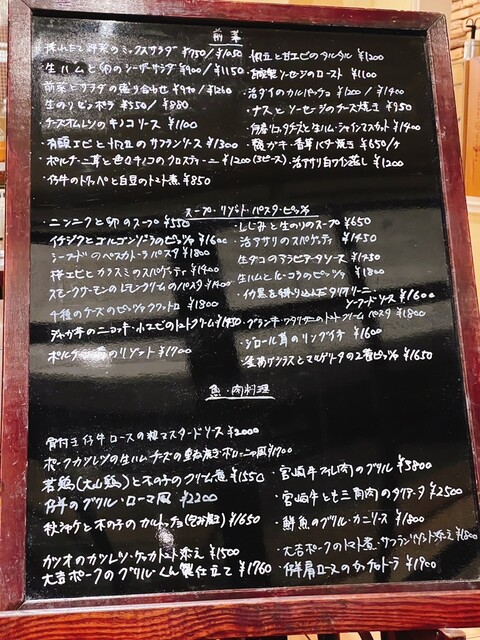 前菜
採れたて野菜のミックスサラダ ¥750/¥1050
生ハムと卵のシーザーサラダ ¥900/¥1150
前菜とサラダの盛り合わせ ¥970/¥1260
生のりゼッポリ ¥550/¥880
チーズオムレツのキノコソース ¥1100
有頭エビと帆立のサフランソース ¥1300
ポルチーニ茸と色々キノコのクロスティーニ ¥1200(3ピース)
仔牛のトリッパと白豆のトマト煮 ¥850
帆立と甘エビのタルタル ¥1200
自家製ソーセージのロースト ¥1100
活ダイのカルパッチョ ¥1200/¥1400
ナスとソーセージのチーズ焼き ¥950
リコッタチーズと生ハム・シャインマスカット ¥1400
殻ガキ・香草バター焼き ¥650/ケ
活アサリ白ワイン蒸し ¥1200
スープ・リゾット・パスタ・ピッツァ
・ニンニクと卵のスープ ¥550
イチジクとゴルゴンゾーラのピッツァ ¥1600
シーフードのペスカトーラパスタ ¥1800
桜エビとカラスミのスパゲッティ ¥1400
スモークサーモンのトマトクリームのパスタ ¥1400
4種のチーズのピッツァクワトロ ¥1800
ジャガ芋のニョッキ・小エビのトマトクリーム ¥1450
ポルチーニ茸のリゾット ¥1700
・しじみと生のりのスープ ¥650
・活アサリのスパゲッティ ¥1450
生タコのアラビアータソース ¥1450
生ハムとルーコラのピッツァ ¥1800
・イカ墨を練り込んだタリオリーニ
シーフードソース ¥1600
・グランキ・ワタリガニのトマトクリームパスタ ¥1800
・ジロール茸のリングイネ ¥1600
・釜あげシラスとマルゲリータの2色ピッツァ ¥1650
魚・肉料理
骨付き仔牛ロースの粒マスタードソース ¥2000
ポークカツレツの生ハムチーズの重ね焼き・ボローニャ風 ¥1700
若鶏(大山鶏)と木の子のクリーム煮 ¥1550
仔羊のグリル・ローマ風 ¥2200
秋シャケと木の子のカルトッチョ(包み焼き) ¥1650
カツオのカツレツ・ケッカトマト添え ¥1500
大吉ポークのグリル・くん製仕立て ¥1760
・宮崎牛フィレ肉のグリル ¥5800
・宮崎牛とも三角肉のタリアータ ¥2500
・鮮魚のグリル・カニソース ¥1800
・大吉ポークのトマト煮・サフランリゾット添え
・仔羊肩ロースのカッチャトーラ ¥1900